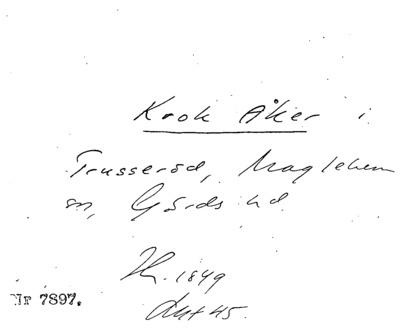 Krok Åker i
Trusseröd, Maglehem
sn, Gärds hd.
1849
Akt 45.
Nr 7897.